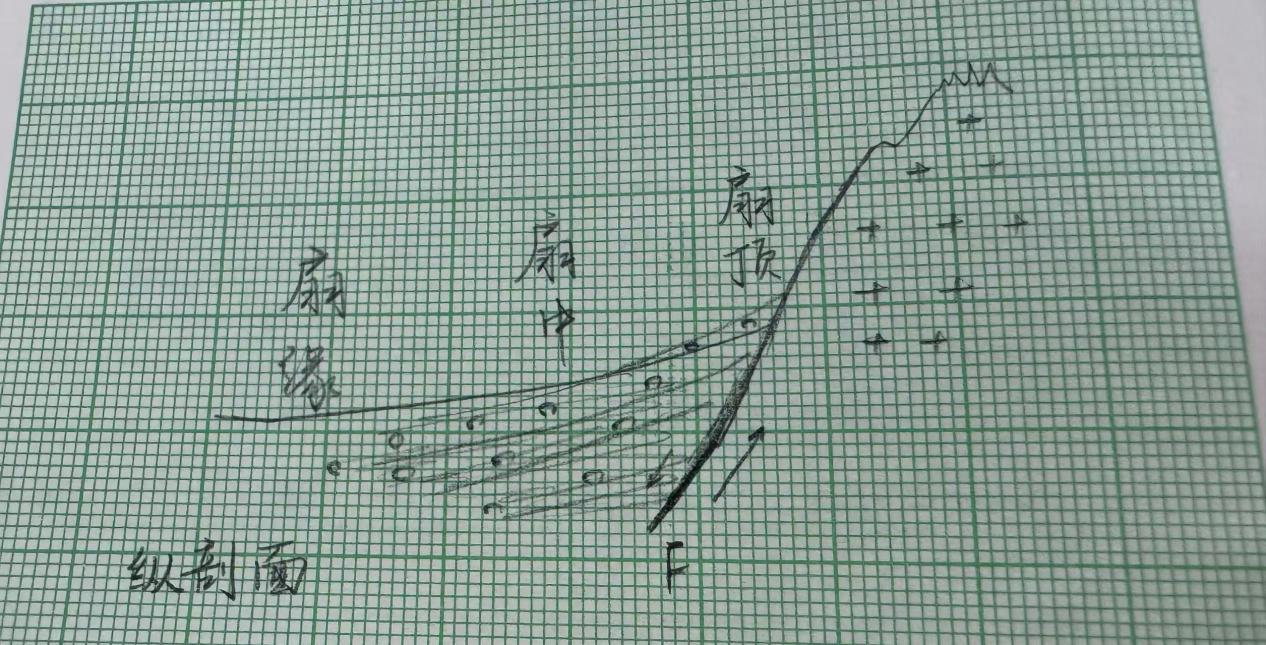 扇缘
扇中
扇顶
F
纵剖面